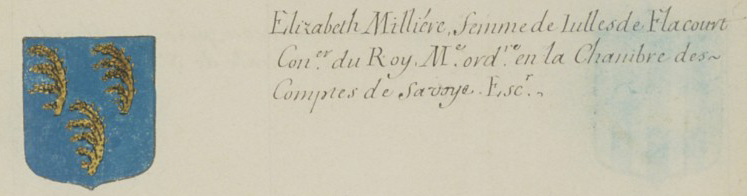 Elizabeth Milliére, Femme de Iulles de Flacourt
Con.er du Roy, M.e ord.re en la Chambre des~
Comptes de Savoye. Esc.r~